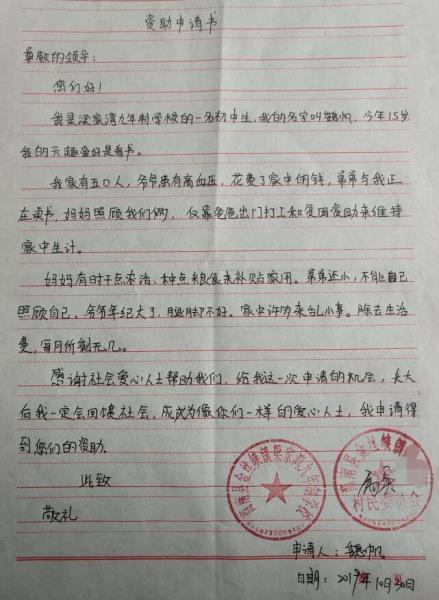 资助申请书
尊敬的领导：
您们好！
我是梁家湾九年制学校的一名初中生，我的名字叫魏帆，今年15岁
我的兴趣爱好是看书。
我家有五口人，爷爷患有高血压，花费了家中的钱，弟弟与我正
在读书，妈妈照顾我们俩，仅靠爸爸出门打工和贫困资助来维持
家中生计。
妈妈有时干点农活，种点粮食来补贴家用。弟弟还小，不能自己
照顾自己，爷爷年纪大了，腿脚不好。家中许多来的小事。除去生活
费，每月所剩无几。
感谢社会爱心人士帮助我们，给我这一次申请的机会，长大
后我一定会回馈社会，成为像你们一样的爱心人士，我申请得
到您们的资助。
此致
敬礼
商南县金丝峡镇梁家湾九年制学校
商南县金丝峡镇
村民委员会
申请人：魏帆
日期：2019年10月30日